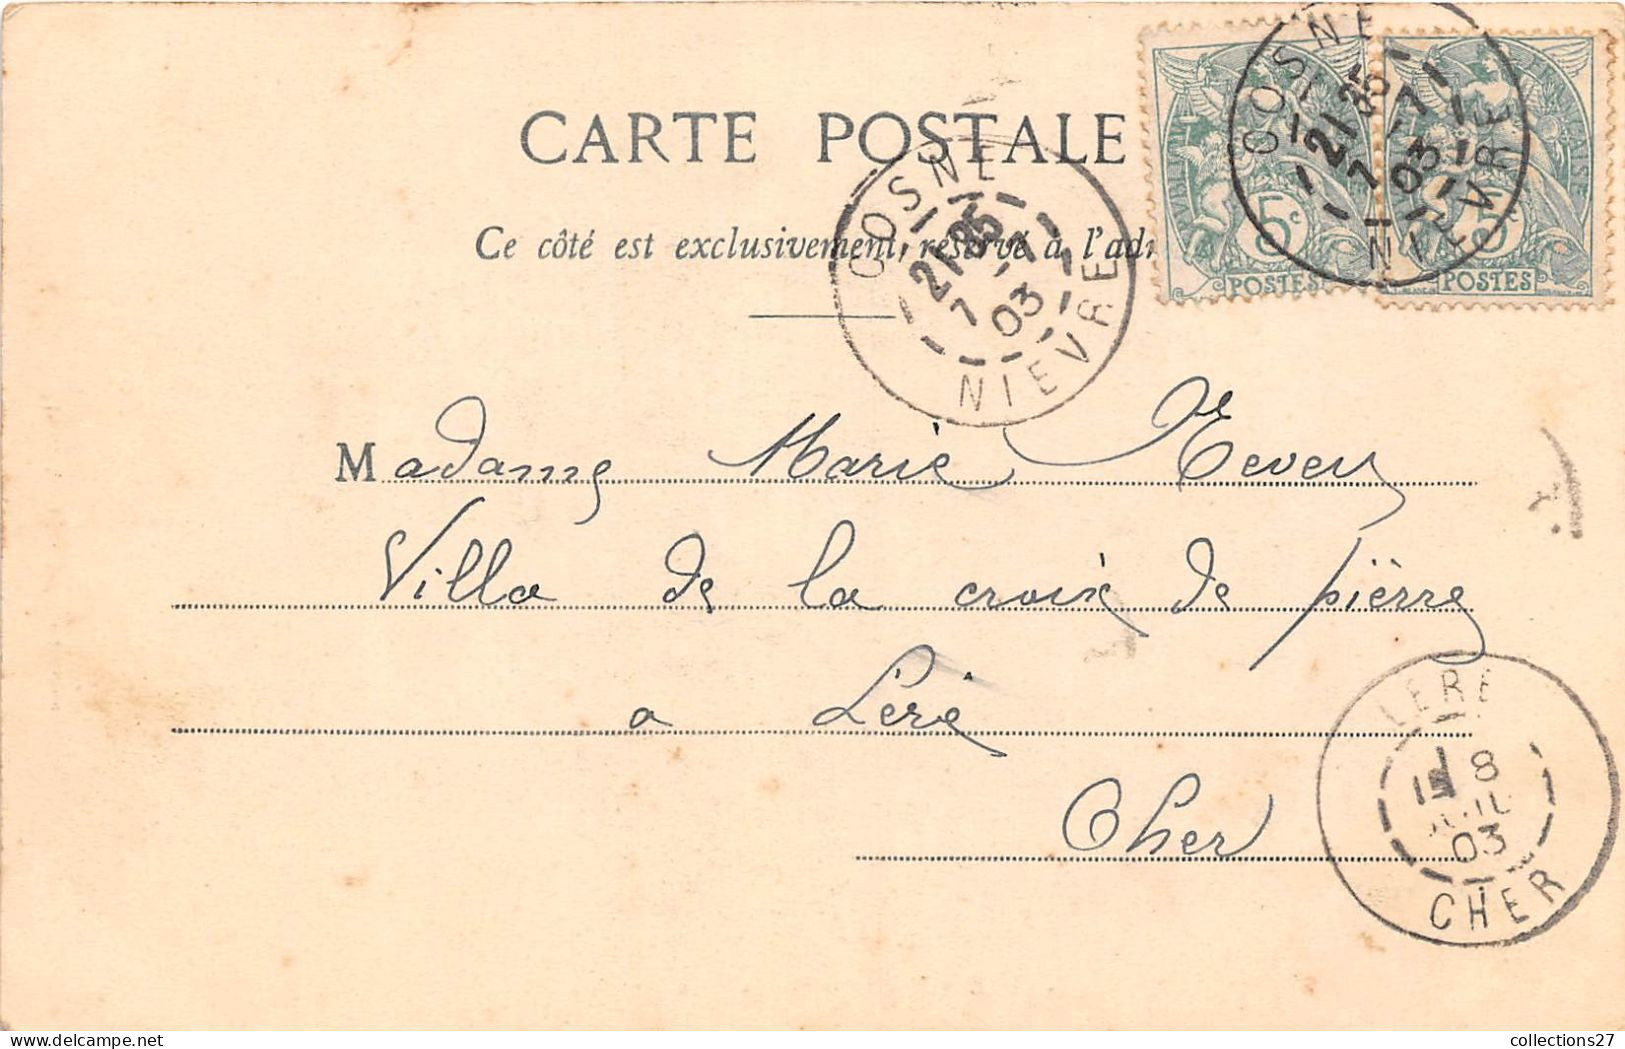 CARTE POSTALE
Ce côté est exclusivement réservé à l'adr
COSNE
21 35
7 -7
03
NIEVRE
COSNE
21 35
7 -7
03
NIEVRE
5c
POSTES
5c
POSTES
Madame Marie
Villa de la croix de pierre
a Léré
Cher
LERE
8
03
CHER
collections27